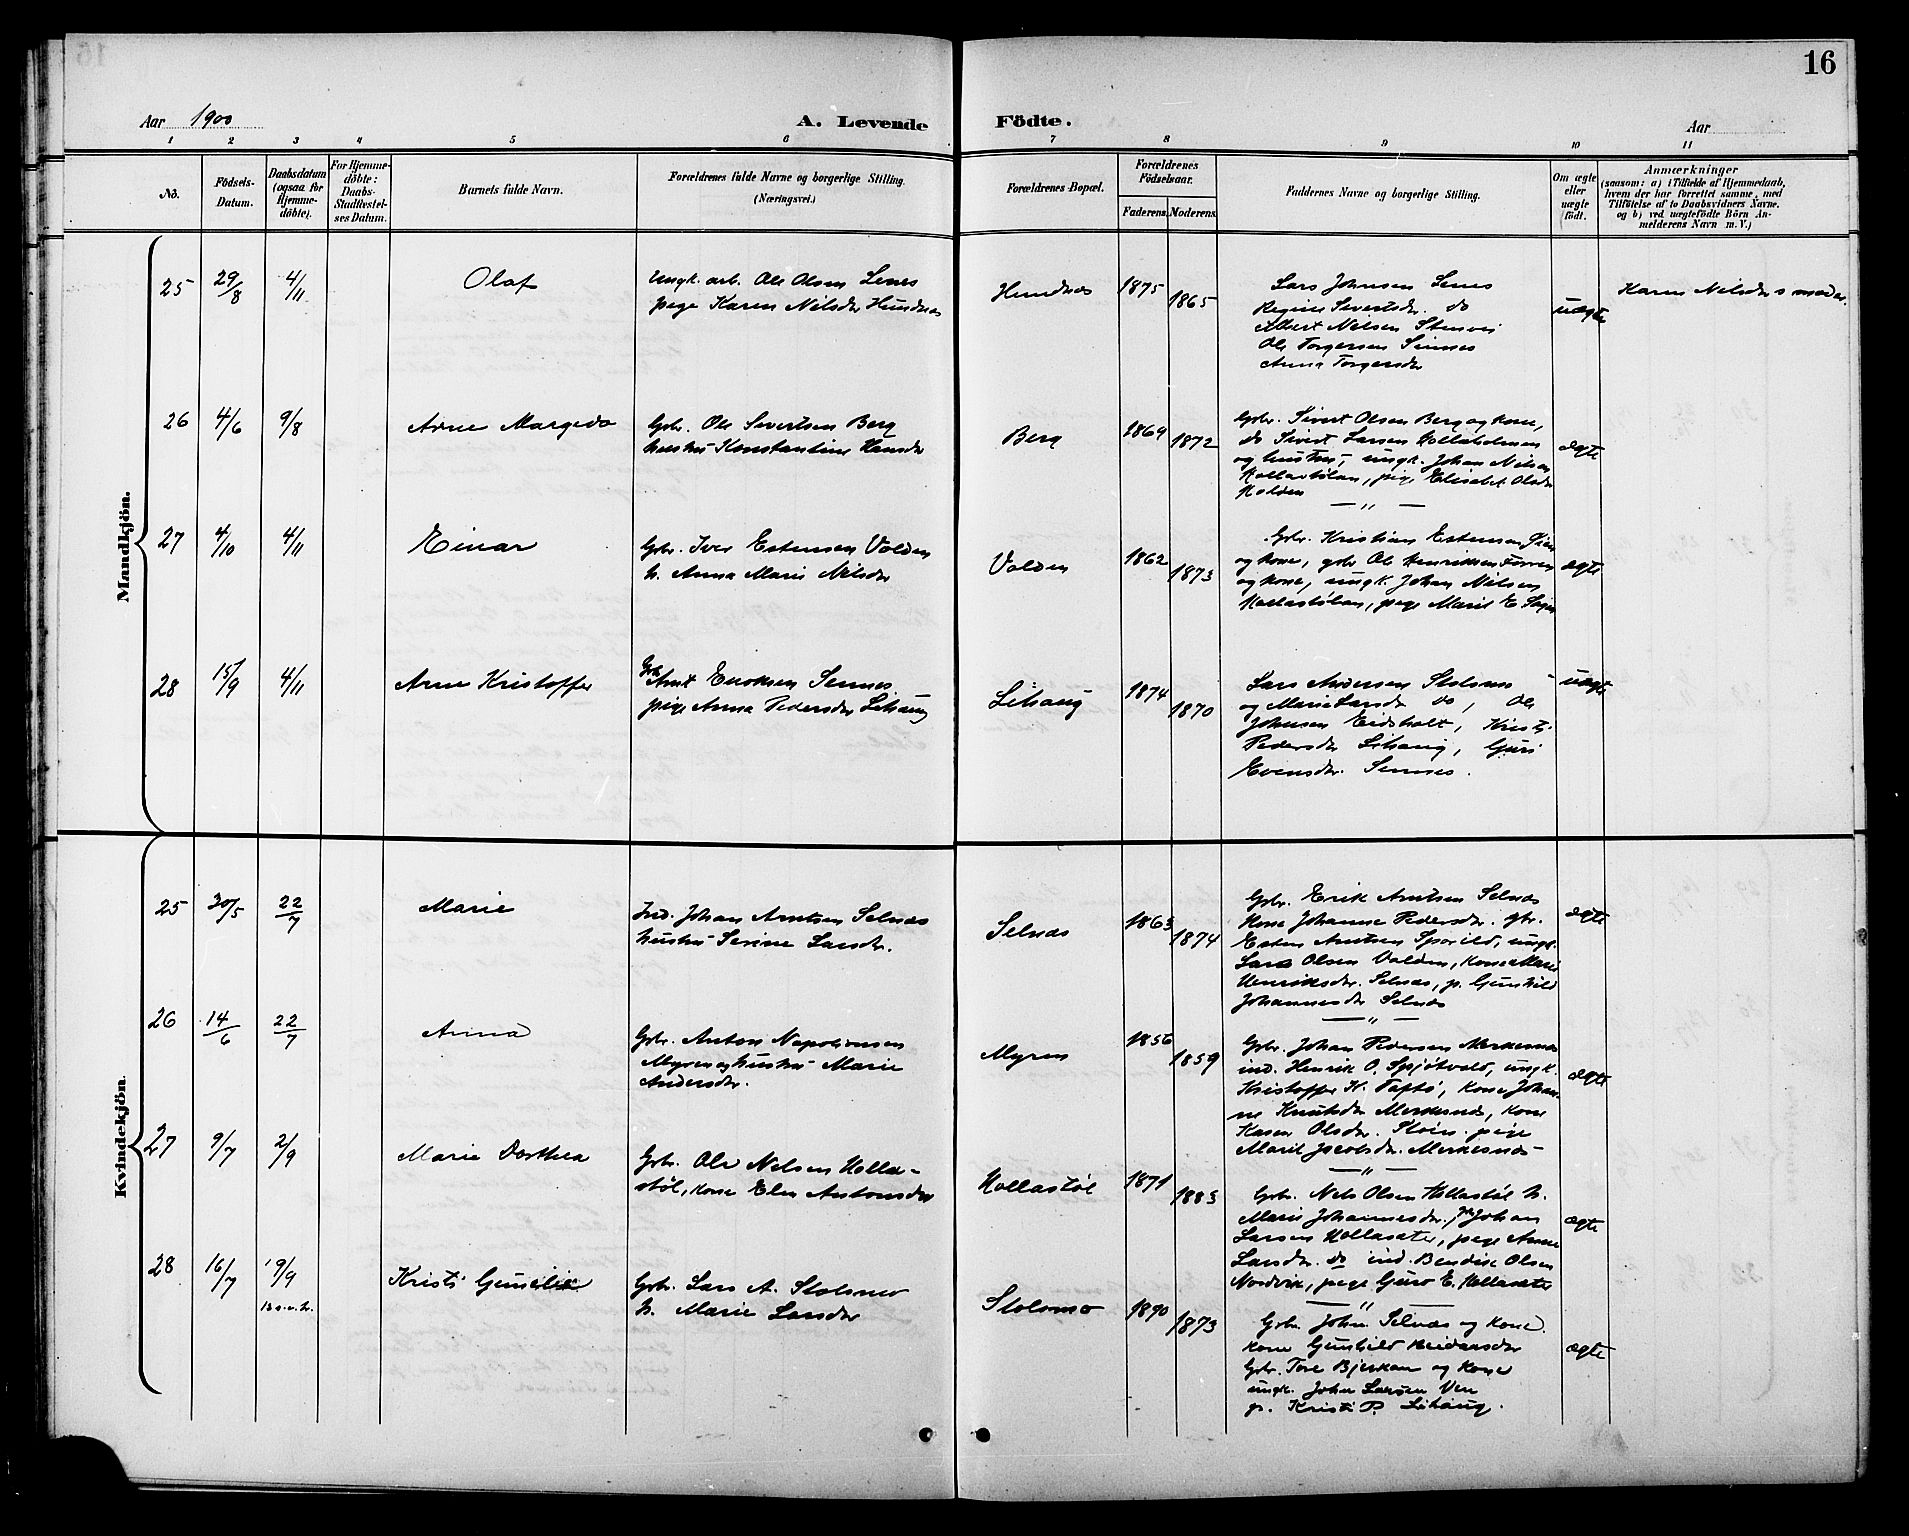 16
Aar 1900
A. Levende Födte.
Aar
1 2 3 4 5 6 7 8 9 10 11
No.
Födsels-
Datum.
Daabsdatum
(ogsaa for
Hjemme-
döbte).
For Hjemme-
döbte:
Daabs-
Stadfæstel-
ses Datum.
Barnets fulde Navn.
Forældrenes fulde Navne og borgerlige Stilling.
(Næringsvei.)
Forældrenes Bopæl.
Forældrenes
Födselsaar.
Faderens. Moderens.
Faddernes Navne og borgerlige Stilling.
Om ægte
eller
uægte
födt.
Anmærkninger
(saasom: a) i Tilfælde af Hjemmedaab,
hvem der har forrettet samme, med
Tilföielse af to Daabsvidners Navne.
og b) ved uægtefödte Börn An-
melderens Navn m. V.)
Mandkjön.
25 29/8 4/11 Olaf
Ungk. arb. Ole Olsen Senes
pige Karen Nilsdr Hundnes
Hundnes 1875 1865
Lars Johnsen Senes
Regine Sivertsdr. do
Albert Nilsen Stenvei
Ole Torgersen Sennes
Anna Torgersdr
uægte
Karen Nilsdr s moder.
26 4/6 9/8 Arne Margido
Gbr. Ole Sivertsen Berg
hustru Konstantine Hansdr
Berg 1869 1872
Gbr. Sivert Olsen Berg og kone,
do Sivert Larsen
og hustru, ungk. Johan Nilsen
Hollastölan, pige Elisabet Olsdr
Holden
ægte
— " —
27 4/10 4/11 Einar
Gbr. Iver Estensen Volden
h. Anna Marie Nilsdr
Volden 1862 1873
Gbr. Kristian Estensen
og kone, gbr Ole Henriksen Forren
og kone, ungk. Johan Nilsen
Hollastölan, pige Marit E
ægte
28 15/9 4/11 Arne Kristoffer
Gbr Arnt Enoksen Sennes
pige Anna Pedersdr Lihaug
Lihaug 1874 1870
Lars Andersen Stolsmo
og Marie Larsdr do, Ole
Johnsen Eidsholt, Kristi
Pedersdr Lihaug, Guri
Evensdr. Sennes.
uægte
Kvindekjön.
25 30/5 22/7 Marie
Ind. Johan Arntsen Selnæs
hustru Serine Larsdr.
Selnæs 1863 1874
Gbr. Erik Arntsen Selnæs
kone Johanne Pedersdr. gbr.
Esten Arntsen Sporild, ungk.
Lars Olsen Volden, kone Marie
Henriksdr. Selnæs, p. Gunhild
Johannesdr Selnæs
ægte
— " —
26 14/6 22/7 Anna
Gbr. Anton Napolionsen
Myren og hustru Marie
Andersdr.
Myren 1856 1859
Gbr. Johan Pedersen Merkesnes
ind. Henrik O. Spjötvold, ungk.
Kristoffer K. Taftö, kone Johan-
ne Knutsdr Merkesnes, kone
Karen Olsdr. Stoin. pige
Marit Jacobsdr. Merkesnes
ægte
— " —
27 9/7 2/9 Marie Dorthea
Gbr. Ole Nilsen Holla-
stöl, kone Elen Antonsdr
Hollastöl 1871 1883
Gbr. Nils Olsen Hollastöl h.
Marie Johannesdr, Johan
Larsen Hollasæter, pige Anne
Larsdr. do ind. Bendik Olsen
Nordvik, pige Guro E. Hollasæter
ægte
— " —
28 16/7 19/9 Kristi
13 s. e. tr.
Gbr. Lars A. Stolsmo
h. Marie Larsdr
Stolsmo 1890 1873
Gbr. John Selnæs og kone.
kone Gunhild Reidarsdr
Gbr. Tore Bjerkan og kone
ungk. John Larsen Ven
p. Kristi P. Lihaug.
ægte